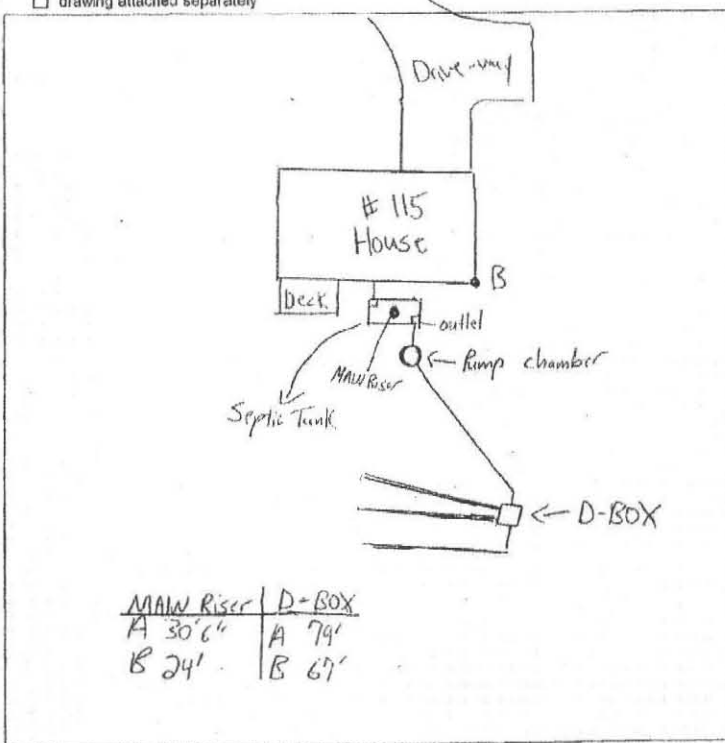 drawing attached separately
Drive-way
# 115
House
B
Deck
outlet
Pump chamber
MAIN Riser
Septic Tank
D-BOX
MAIN Riser D-BOX
A 30'6" A 79'
B 24' B 67'